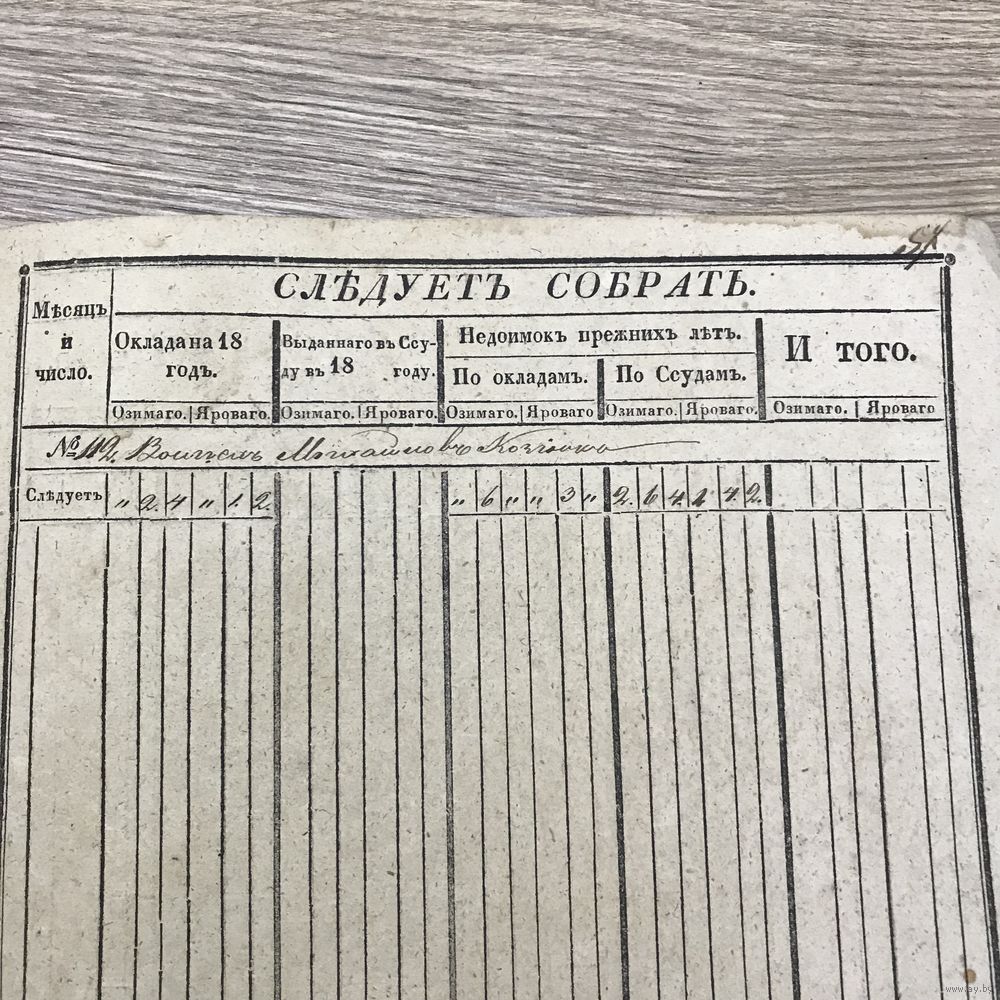 СЛѢДУЕТЪ СОБРАТЬ.
Мѣсяцъ и число.
Оклада на 18 годъ.
Выданнаго въ Ссу-
ду въ 18 году.
Недоимокъ прежнихъ лѣтъ.
По окладамъ. По Ссудамъ.
И того.
Озимаго. Яроваго. Озимаго. Яроваго. Озимаго. Яроваго Озимаго. Яроваго. Озимаго. Яроваго
№ 112. Михайловъ
Слѣдуетъ „ 2. 4 „ 1. 2. „ 6 „ „ 3 „ 2. 6 4. 1 4. 2.
www.ay.by